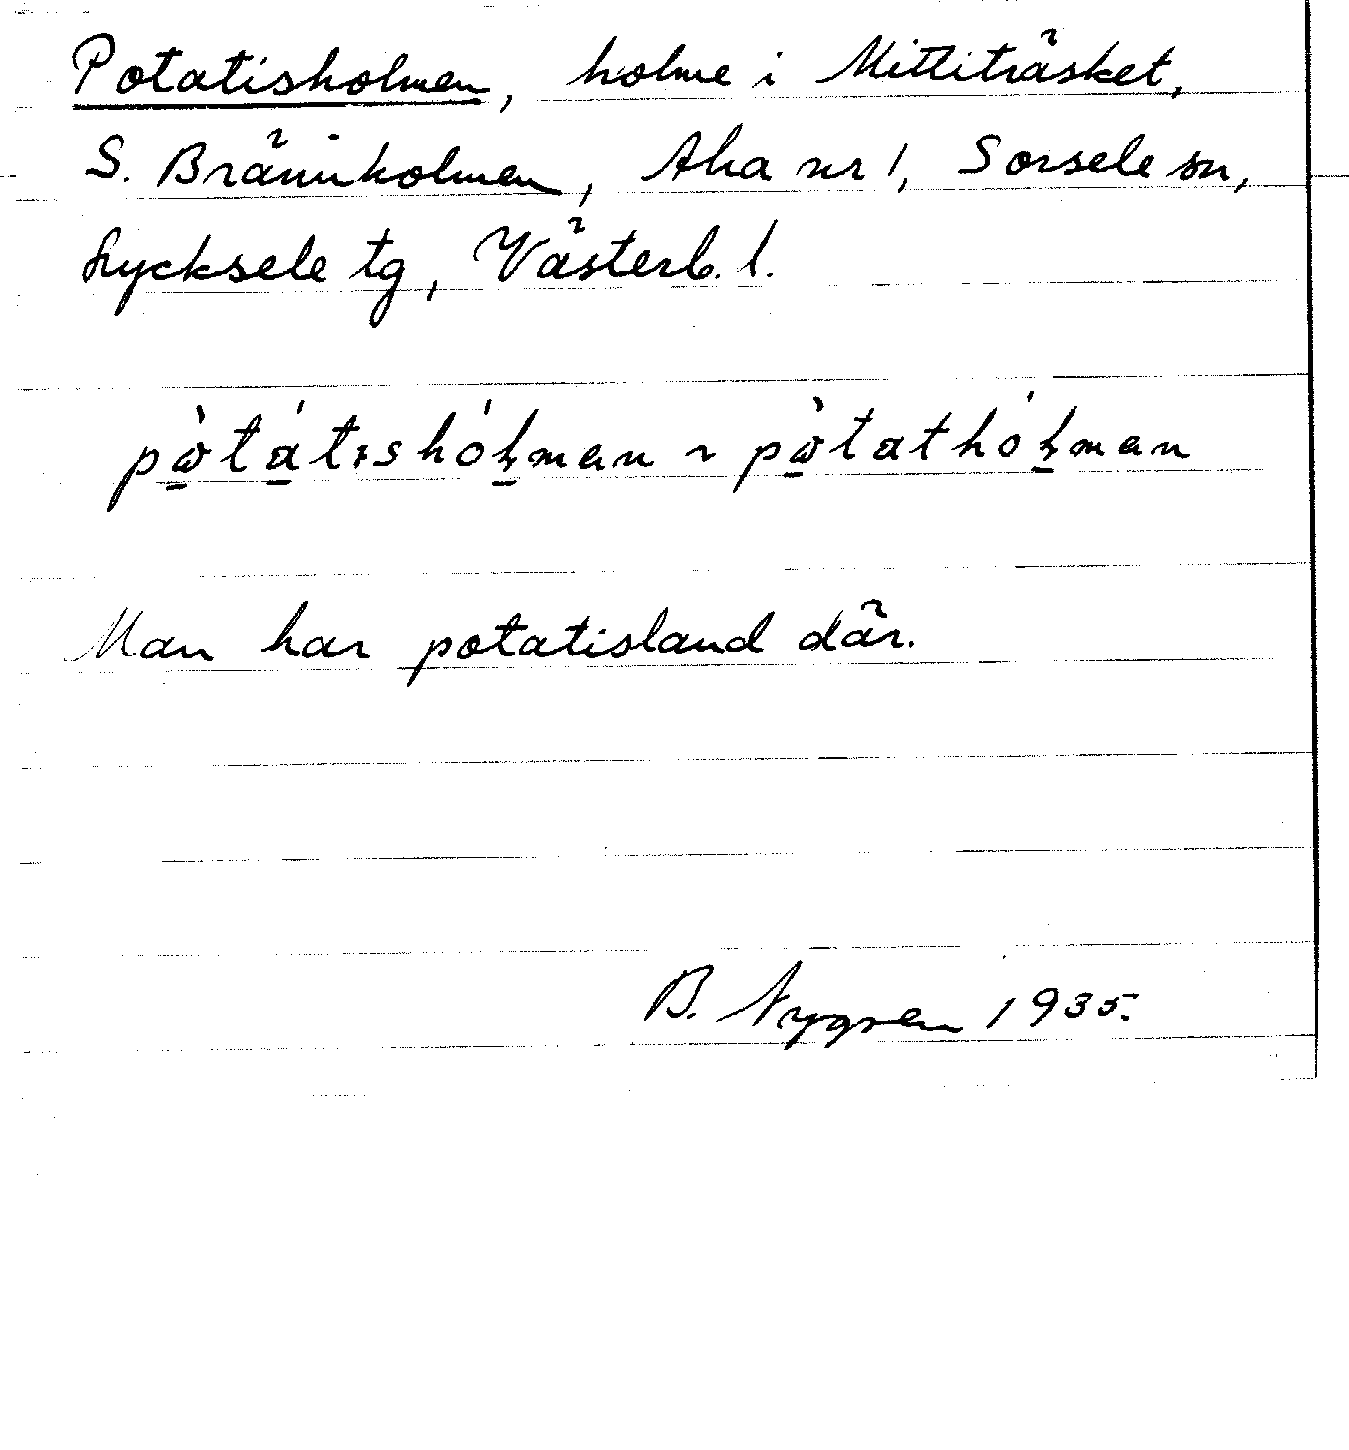 Potatisholmen, holme i Mittiträsket,
S. Brännholmen, Aha nr 1, Sorsele sn,
Lycksele tg, Västerb. l.
pὼ̱tá̱tıshóḻman ~ pὼ̱tathóḻman
Man har potatisland där.
B. Nygren 1935.